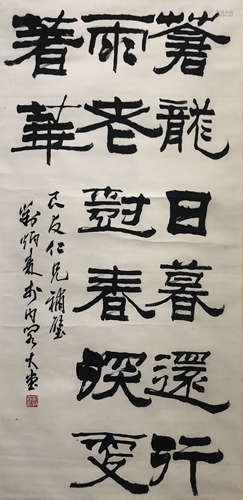 蒼龍日暮還行
雨老樹春深更
著華
友仁兄補壁
劉炳森於